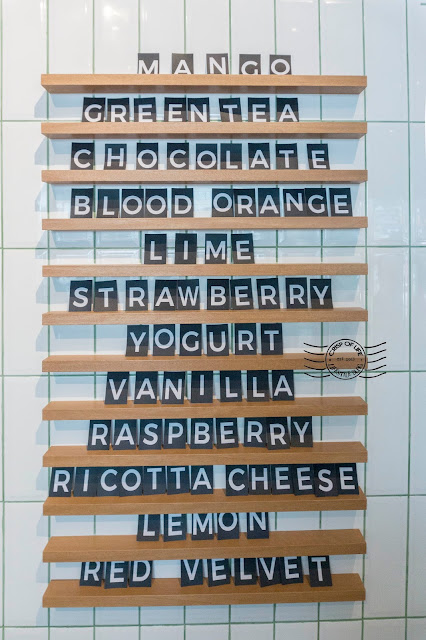 MANGO
GREEN TEA
CHOCOLATE
BLOOD ORANGE
LIME
STRAWBERRY
YOGURT
VANILLA
RASPBERRY
RICOTTA CHEESE
LEMON
RED VELVET
CRISP OF LIFE